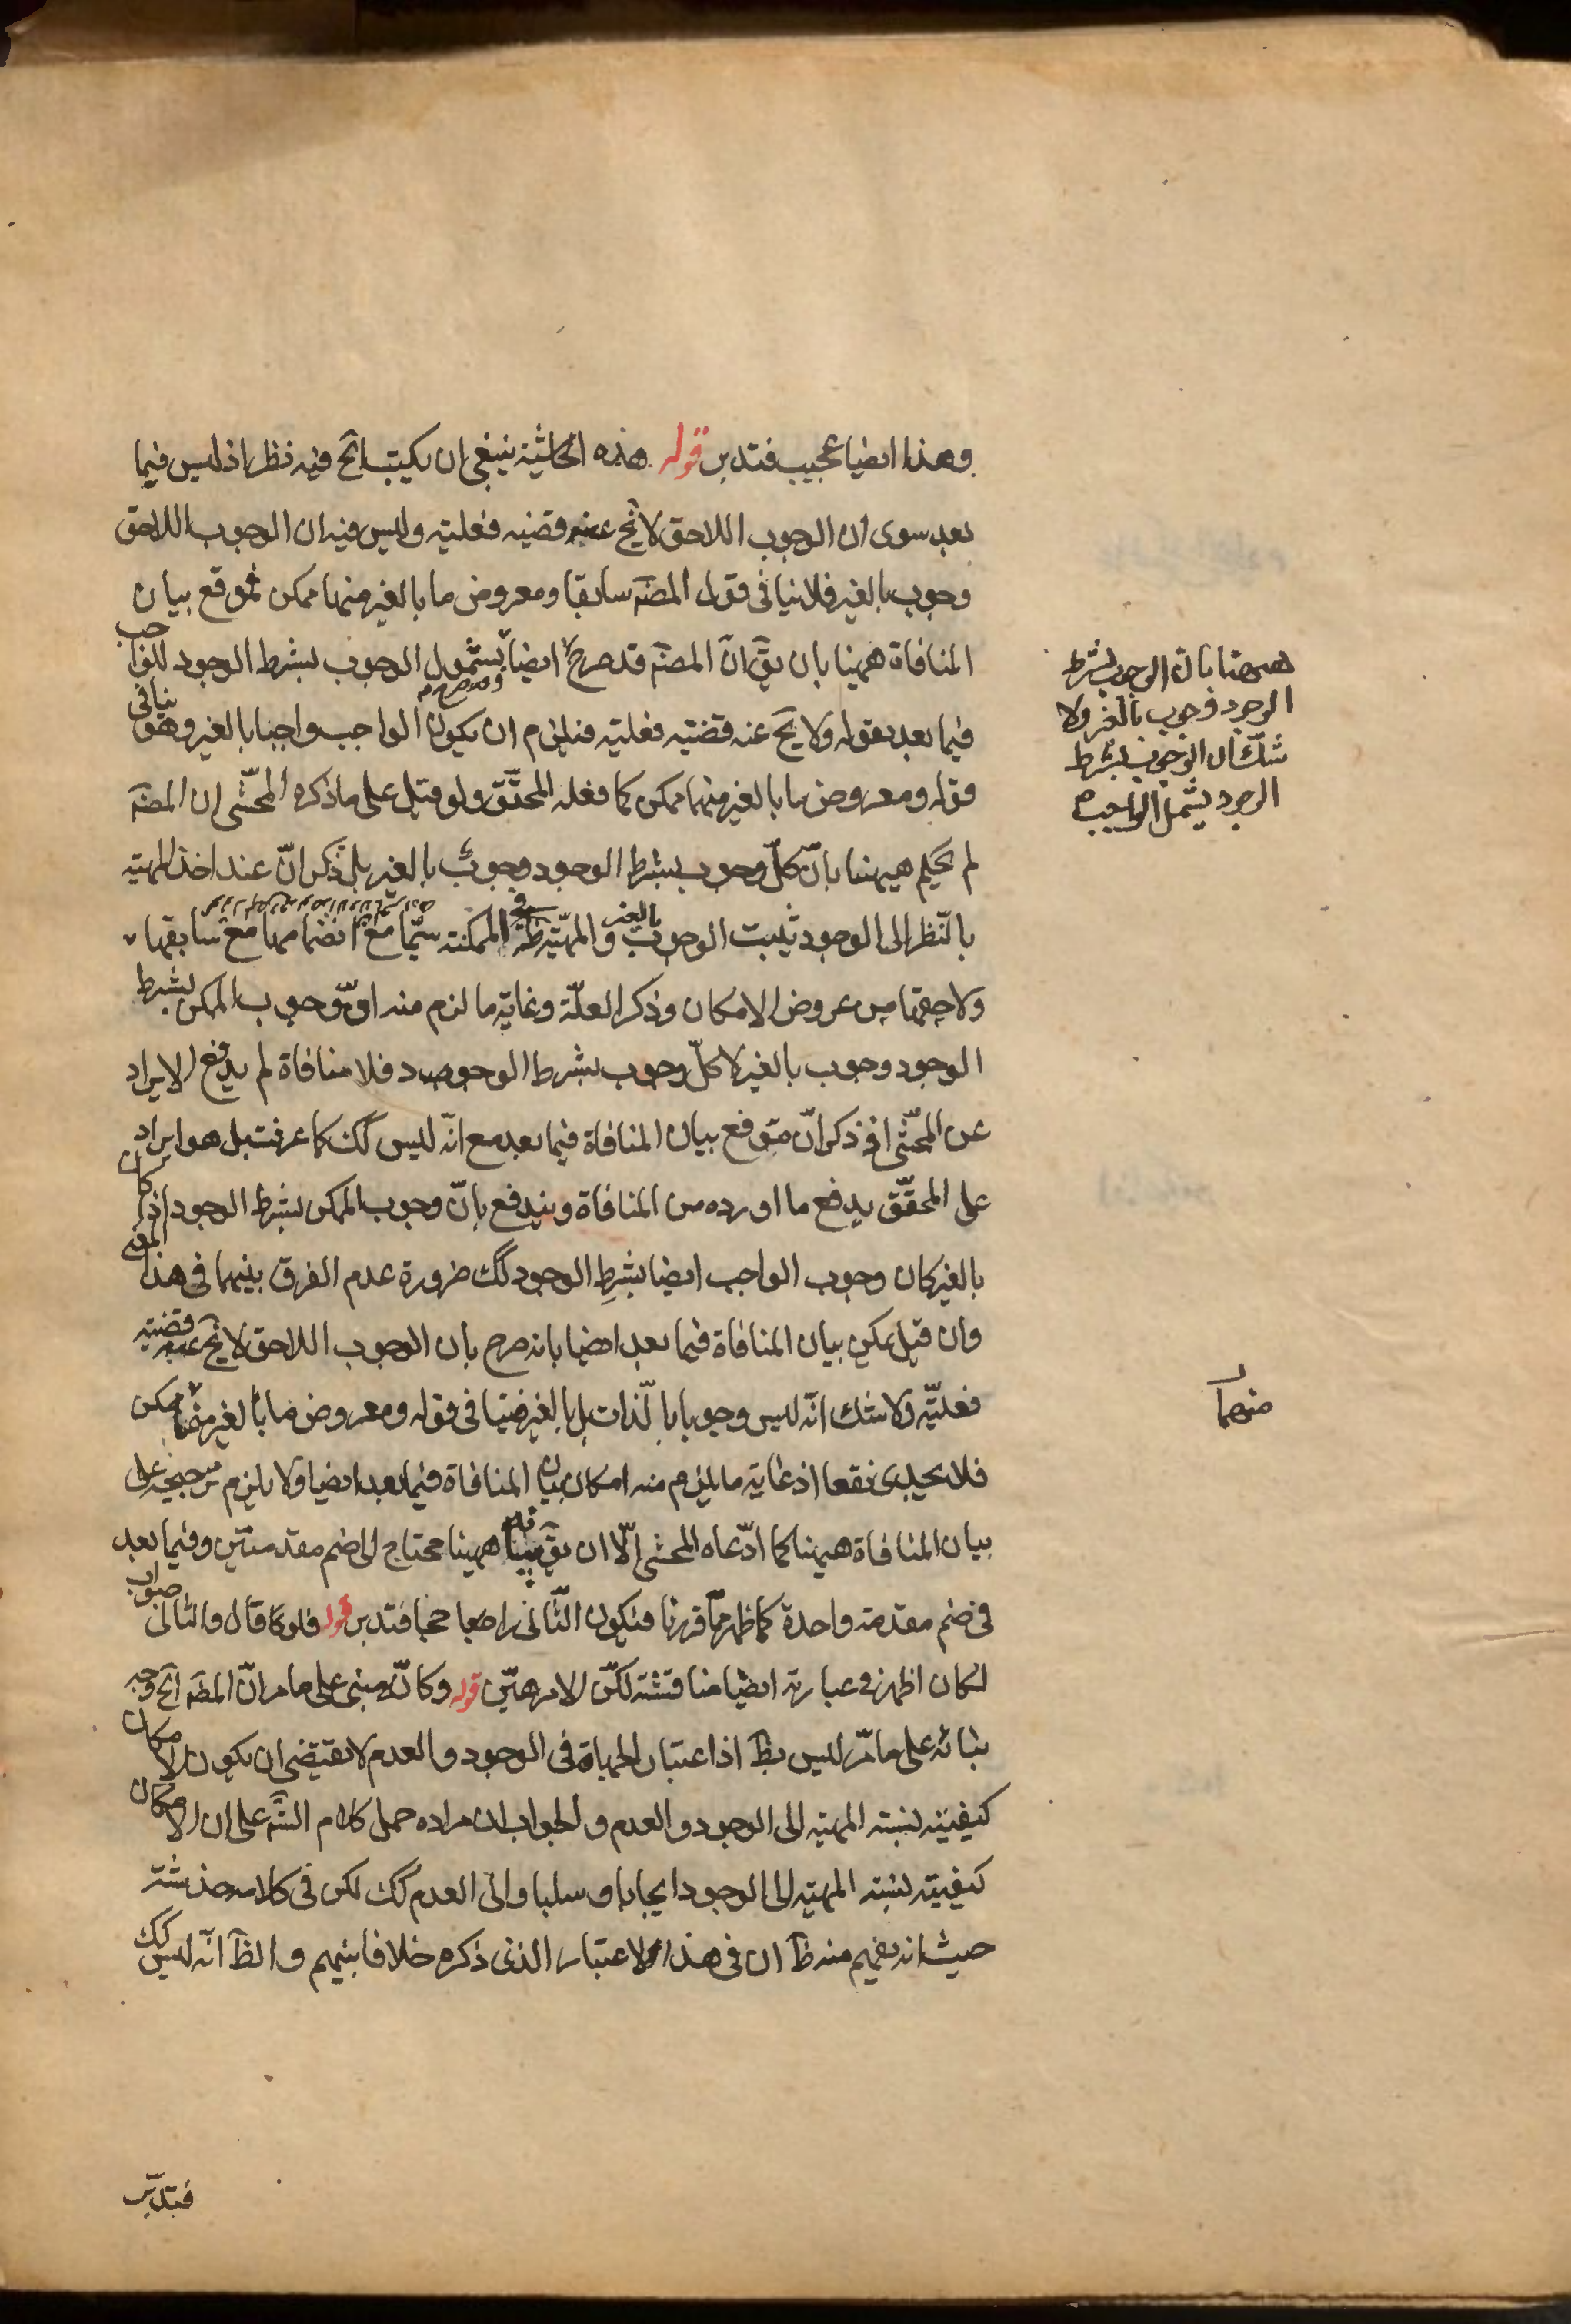 وهذا ايضا عجيب فتدبر قوله هذه الحاشية ينبغى ان يكتب الخ فيه نظر اذ ليس فيما
بعد سوى ان الوجوب اللاحق لا يخ عنه قضيه فعليته وليس فيه ان الوجوب اللاحق
وجوب بالغير فلا ينافى قول المصنّف سابقا ومعروض ما بالغير منهما ممكن ثم وقع بيان
المنافاة ههنا بان يقّ انّ المصنّف قد صرح ايضا بشمول الوجوب بشرط الوجود للواجب
فيما بعد بقوله ولا يخ عنه قضيته فعليته فيلزم ان يكون الواجب واجبا بالغير وهو ينافى
قوله ومعروض ما بالغير منهما ممكن كما فعله المحقّق ولو قيل على ما ذكره المحشّى ان المصنّف
لم يحكم هيهنا بانّ كلّ وجوب بشرط الوجود وجوب بالغير بل ذكر انّ عند اخذ المهيّه
بالنّظر الى الوجود ثيبت الوجوب بالغير والمهيّة ظ فى الممكنته سيّما مع انضمامها مع سابقها
ولاحقها من عروض الامكان وذكر العلّة وغاية ما لزم منه اوّ وجوب الممكن بشرط
الوجود وجوب بالغير لا كلّ وجوب بشرط الوجود فلا منافاة لم يدفع الايراد
عن المحشّى اذ ذكر انّ موقع بيان المنافاة فيما بعد مع انّه ليس كك كما عرفت بل هو ايراد
على المحقّق يدفع ما اورده من المنافاة ويندفع بانّ وجوب الممكن بشرط الوجود اذا كان
بالغير كان وجوب الواجب ايضا بشرط الوجود كك ضرورة عدم الفرق بينهما فى هذا المعنى
وان قيل يمكن بيان المنافاة فيما بعد ايضا بانه صرح بان الوجوب اللاحق لا يخ عنه قضيته
فعليّه ولا شك انّه ليس وجوبا بالذات بل بالغير فينافى قوله ومعروض ما بالغير منهما ممكن
فلا يجدى نفعا اذ غايته ما يلزم منه امكان بيان المنافاة فيما بعد ايضا ولا يلزم ترجيحه على
بيان المنافاة هيهنا كما ادّعاه المحشى الّا ان يقّ بيانه ههنا محتاج الى ضم مقدمتين وفيما بعد
فى ضم مقدمته واحدة كما ظهر ممّا قررنا فيكون الثّانى راجحا فتدبر قوله فلو كا قال والثانى صواب
لكان اظهر فى عبارته ايضا مناقشته لكنّ الامر هيّن قوله وكانّه مبنى على ما مر انّ المصنّف الخ وجه
بنائه على ما مرّ ليس بظ اذ اعتبار المهيّة فى الوجود والعدم لا يقتضى ان يكون الامكان
كيفيته نسبته المهيّه الى الوجود والعدم والجواب ان مراده حمل كلام الشّ على ان الامكان
كيفيته نسبته المهيته الى الوجود ايجابا وسلبا والى العدم كك لكن فى كلامه خدشته
حيث انه يفهم منه ظ ان فى هذا الاعتبار الذى ذكره خلافا بينهم والظ انّه ليس كك
فتدبّر
ههنا بان الوجوب بشرط
الوجود وجوب بالغير ولا
شكّ ان الوجوب بشرط
الوجود يشمل الواجب
منهما